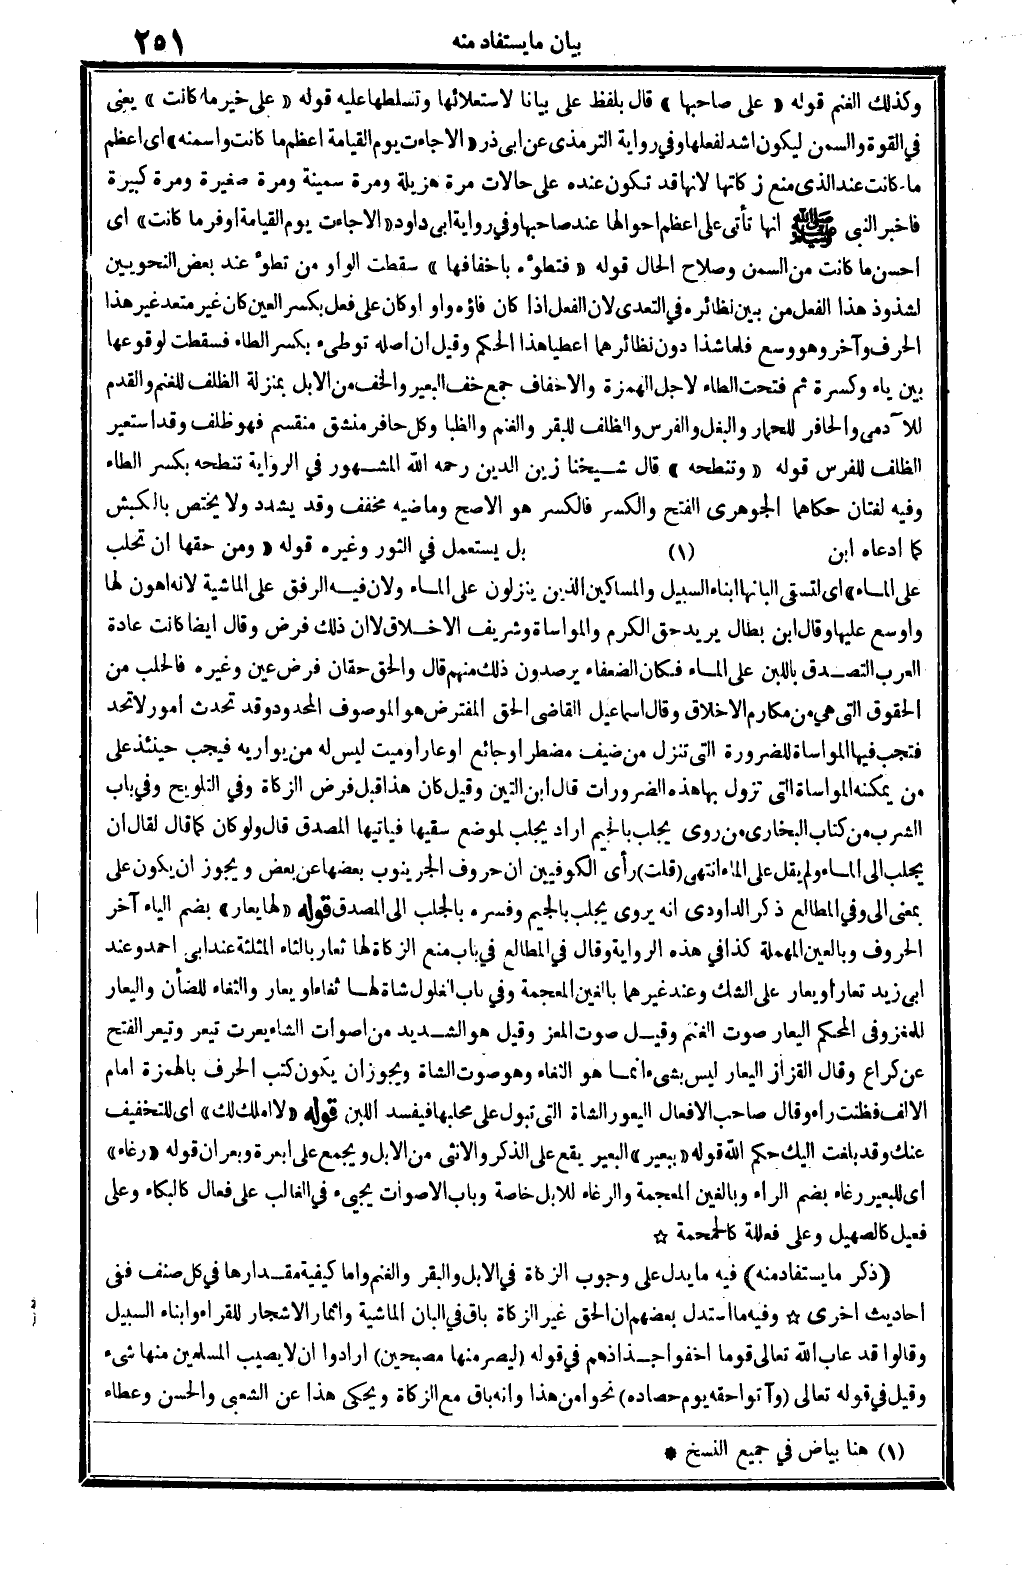 بيان ما يستفاد منه
٢٥١
وكذلك الغنم قوله « على صاحبها » قال بلفظ على بيانا لاستعلائها وتسلطها عليه قوله « على خير ما كانت » يعنى
في القوة والسمن ليكون اشد لفعلها وفي رواية الترمذى عن ابى ذر « الا جاءت يوم القيامة اعظم ما كانت واسمنه » اى اعظم
ما كانت عند الذى منع زكاتها لانها قد تكون عنده على حالات مرة هزيلة ومرة سمينة ومرة صغيرة ومرة كبيرة
فاخبر النبى ﷺ انها تأتى على اعظم احوالها عند صاحبها وفي رواية ابى داود « الا جاءت يوم القيامة اوفر ما كانت » اى
احسن ما كانت من السمن وصلاح الحال قوله « فتطؤه باخفافها » سقطت الواو من تطؤ عند بعض النحويين
لشذوذ هذا الفعل من بين نظائره في التعدى لان الفعل اذا كان فاؤه واو اوكان على فعل بكسر العين كان غير متعد غير هذا
الحرف وآخر وهو وسع فلما شذا دون نظائرهما اعطيا هذا الحكم وقيل ان اصله توطىء بكسر الطاء فسقطت لوقوعها
بين ياء وكسرة ثم فتحت الطاء لاجل الهمزة والاخفاف جمع خف البعير والخف من الابل بمنزلة الظلف للغنم والقدم
للآدمى والحافر للحمار والبغل والفرس والظلف للبقر والغنم والظبا وكل حافر منشق منقسم فهو ظلف وقد استعير
الظلف للفرس قوله « وتنطحه » قال شيخنا زين الدين رحمه الله المشهور في الرواية تنطحه بكسر الطاء
وفيه لغتان حكاهما الجوهرى الفتح والكسر فالكسر هو الاصح وماضيه مخفف وقد يشدد ولا يختص بالكبش
كما ادعاه ابن (١) بل يستعمل في الثور وغيره قوله « ومن حقها ان تحلب
على الماء » اى لتسقى البانها ابناء السبيل والمساكين الذين ينزلون على الماء ولان فيه الرفق على الماشية لانه اهون لها
واوسع عليها وقال ابن بطال يريد حق الكرم والمواساة وشريف الاخلاق لا ان ذلك فرض وقال ايضا كانت عادة
العرب التصدق باللبن على الماء فكان الضعفاء يرصدون ذلك منهم قال والحق حقان فرض عين وغيره فالحلب من
الحقوق التى هي من مكارم الاخلاق وقال اسماعيل القاضى الحق المفترض هو الموصوف المحدود وقد تحدث امور لا تحد
فتجب فيها المواساة للضرورة التى تنزل من ضيف مضطر او جائع او عار او ميت ليس له من يواريه فيجب حينئذ على
من يمكنه المواساة التى تزول بها هذه الضرورات قال ابن التين وقيل كان هذا قبل فرض الزكاة وفي التلويح وفي باب
الشرب من كتاب البخارى من روى يجلب بالجيم اراد يجلب لموضع سقيها فياتيها المصدق قال ولو كان كما قال لقال ان
يجلب الى الماء ولم يقل على الماء انتهى (قلت) رأى الكوفيين ان حروف الجر ينوب بعضها عن بعض ويجوز ان يكون على
بمعنى الى وفي المطالع ذكر الداودى انه يروى يجلب بالجيم وفسره بالجلب الى المصدق قوله « لها يعار » بضم الياء آخر
الحروف وبالعين المهملة كذا في هذه الرواية وقال في المطالع في باب منع الزكاة لها ثعار بالثاء المثلثة عند ابى احمد وعند
ابى زيد تعار او يعار على الشك وعند غيرهما بالغين المعجمة وفي باب الغلول شاة لها ثغاء او يعار والثغاء للضأن واليعار
للمعز وفى المحكم اليعار صوت الغنم وقيل صوت المعز وقيل هو الشديد من اصوات الشاء يعرت تيعر وتيعر الفتح
عن كراع وقال القزاز اليعار ليس بشىء انما هو الثغاء وهو صوت الشاة ويجوز ان يكون كتب الحرف بالهمزة امام
الالف فظنت راء وقال صاحب الافعال اليعور الشاة التى تبول على محلبها فيفسد اللبن قوله « لا املك لك » اى للتخفيف
عنك وقد بلغت اليك حكم الله قوله « ببعير » البعير يقع على الذكر والانثى من الابل ويجمع على ابعرة وبعران قوله « رغاء »
اى للبعير رغاء بضم الراء وبالغين المعجمة والرغاء للابل خاصة وباب الاصوات يجيىء في الغالب على فعال كالبكاء وعلى
فعيل كالصهيل وعلى فعللة كالحمحمة ☆
(ذكر ما يستفاد منه) فيه ما يدل على وجوب الزكاة في الابل والبقر والغنم واما كيفية مقدارها في كل صنف ففى
احاديث اخرى ☆ وفيه ما استدل بعضهم ان الحق غير الزكاة باق في البان الماشية واثمار الاشجار للقراء وابناء السبيل
وقالوا قد عاب الله تعالى قوما اخفوا جذاذهم في قوله (ليصرمنها مصبحين) ارادوا ان لا يصيب المسلمين منها شىء
وقيل في قوله تعالى (وآتوا حقه يوم حصاده) نحوا من هذا وانه باق مع الزكاة ويحكى هذا عن الشعبى والحسن وعطاء
(١) هنا بياض في جميع النسخ *